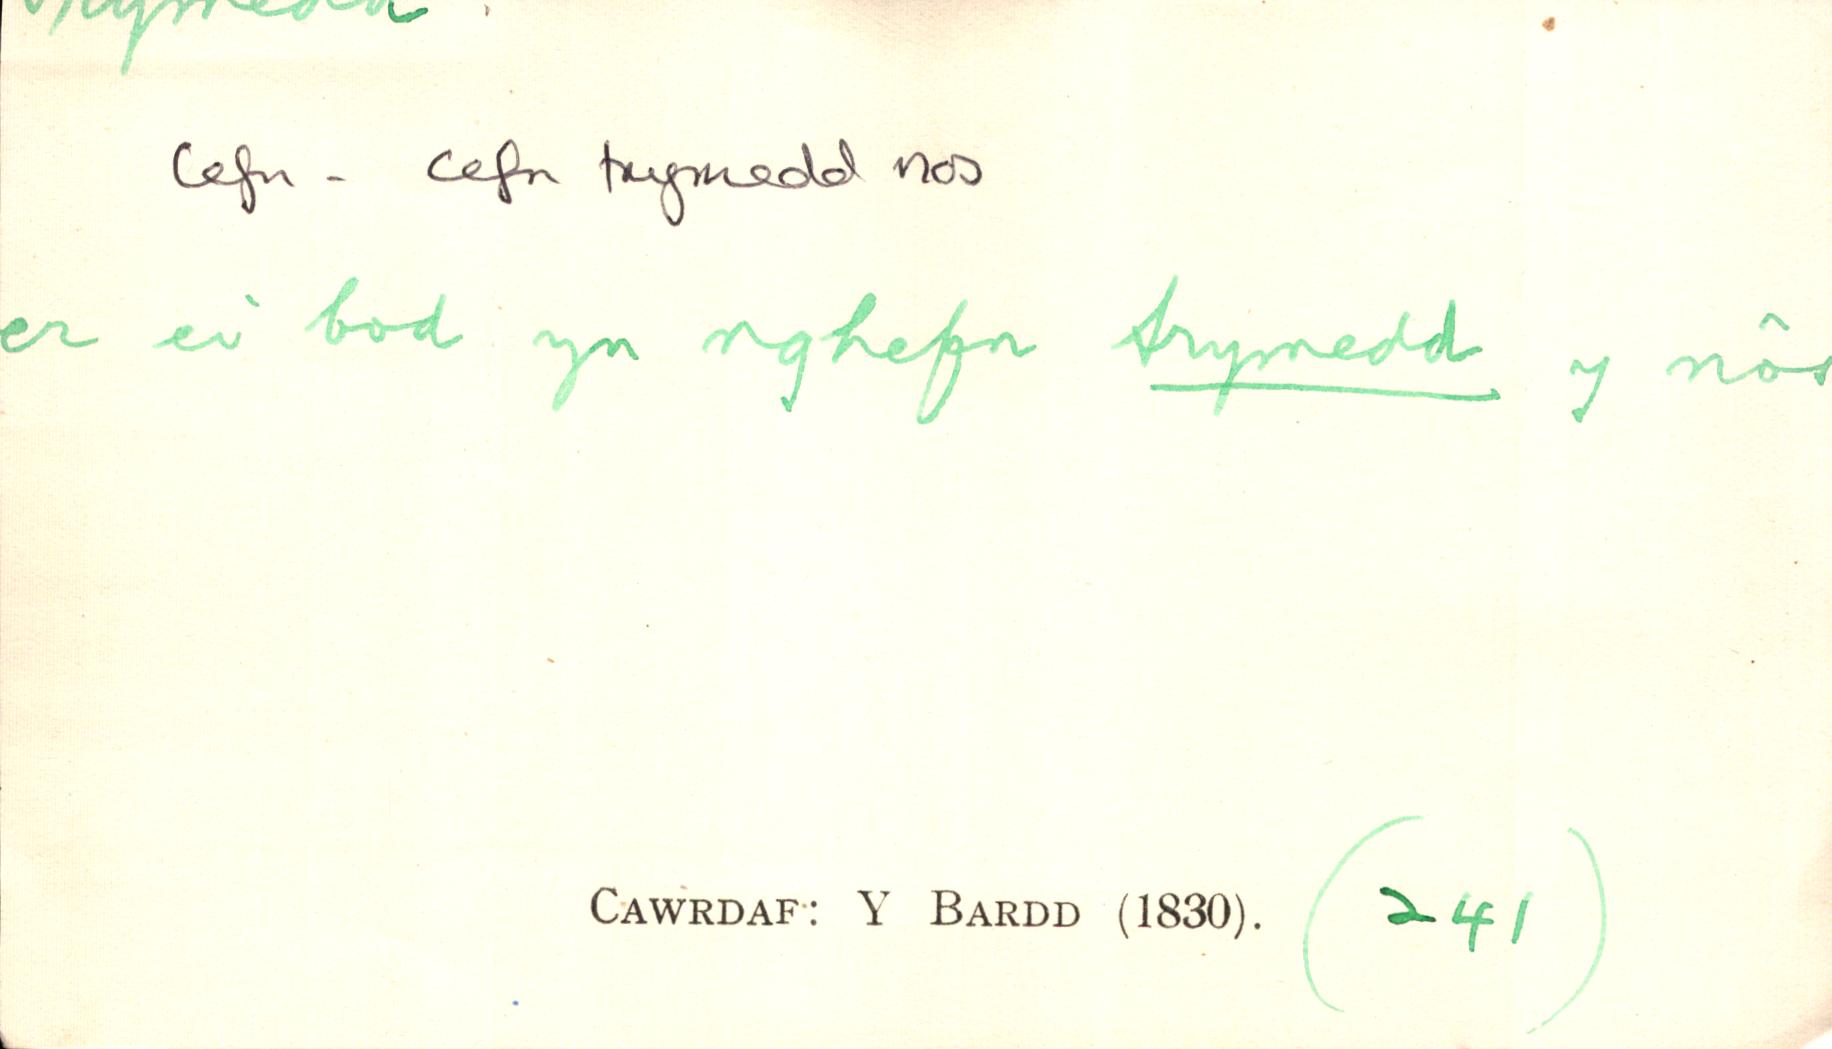 trymedd
Cefn - cefn trymedd nos
er ei bod yn nghefn trymedd y nôs
CAWRDAF: Y BARDD (1830). (241)